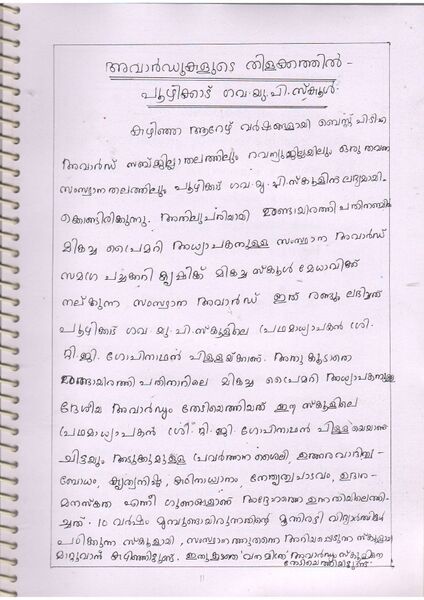 അവാർഡുകളുടെ തിളക്കത്തിൽ -
പൂഴിക്കാട് ഗവ. യു. പി. സ്കൂൾ.
കഴിഞ്ഞ ആറേഴ് വർഷങ്ങളായി ബെസ്റ്റ് പി.ടി.എ
അവാർഡ് സബ്ജില്ലാതലത്തിലും റവന്യൂജില്ലയിലും ഒരു തവണ
സംസ്ഥാന തലത്തിലും പൂഴിക്കാട് ഗവ. യു. പി. സ്കൂളിന് ലഭ്യമായി-
ക്കൊണ്ടിരിക്കുന്നു. അതിലുപരിയായി രണ്ടായിരത്തി പതിനഞ്ചിൽ
മികച്ച പ്രൈമറി അധ്യാപകനുള്ള സംസ്ഥാന അവാർഡ്
സമഗ്ര പച്ചക്കറി കൃഷിക്ക് മികച്ച സ്കൂൾ മേധാവിക്ക്
നല്കുന്ന സംസ്ഥാന അവാർഡ് ഇത് രണ്ടും ലഭിച്ചത്
പൂഴിക്കാട് ഗവ. യു. പി. സ്കൂളിലെ പ്രഥമാധ്യാപകൻ ശ്രീ.
റ്റി. ജി. ഗോപിനാഥൻ പിള്ളയ്ക്കാണ്. അതു കൂടാതെ
രണ്ടായിരത്തി പതിനാറിലെ മികച്ച പ്രൈമറി അധ്യാപകനുള്ള
ദേശീയ അവാർഡും തേടിയെത്തിയത് ഈ സ്കൂളിലെ
പ്രഥമാധ്യാപകൻ ശ്രീ. റ്റി. ജി. ഗോപിനാഥൻ പിള്ളയെയാണ്
ചിട്ടയും അടുക്കുമുള്ള പ്രവർത്തന ശൈലി, ഉത്തരവാദിത്വ-
ബോധം, കൃത്യനിഷ്ഠ, കഠിനാധ്വാനം, നേതൃത്വപാടവം, ഉദാര-
മനസ്കത എന്നീ ഗുണങ്ങളാണ് അദ്ദേഹത്തെ ഉന്നതിയിലെത്തി-
ച്ചത്. 10 വർഷം മുമ്പുണ്ടായിരുന്നതിന്റെ മൂന്നിരട്ടി വിദ്യാർത്ഥികൾ
പഠിക്കുന്ന സ്കൂളായി, സംസ്ഥാനത്തുതന്നെ അറിയപ്പെടുന്ന സ്കൂളായി
മാറ്റുവാൻ കഴിഞ്ഞിട്ടുണ്ട്. ഇതുകൂടാതെ 'വനമിത്ര' അവാർഡും സ്കൂളിനെ
തേടിയെത്തിയിട്ടുണ്ട്.
11